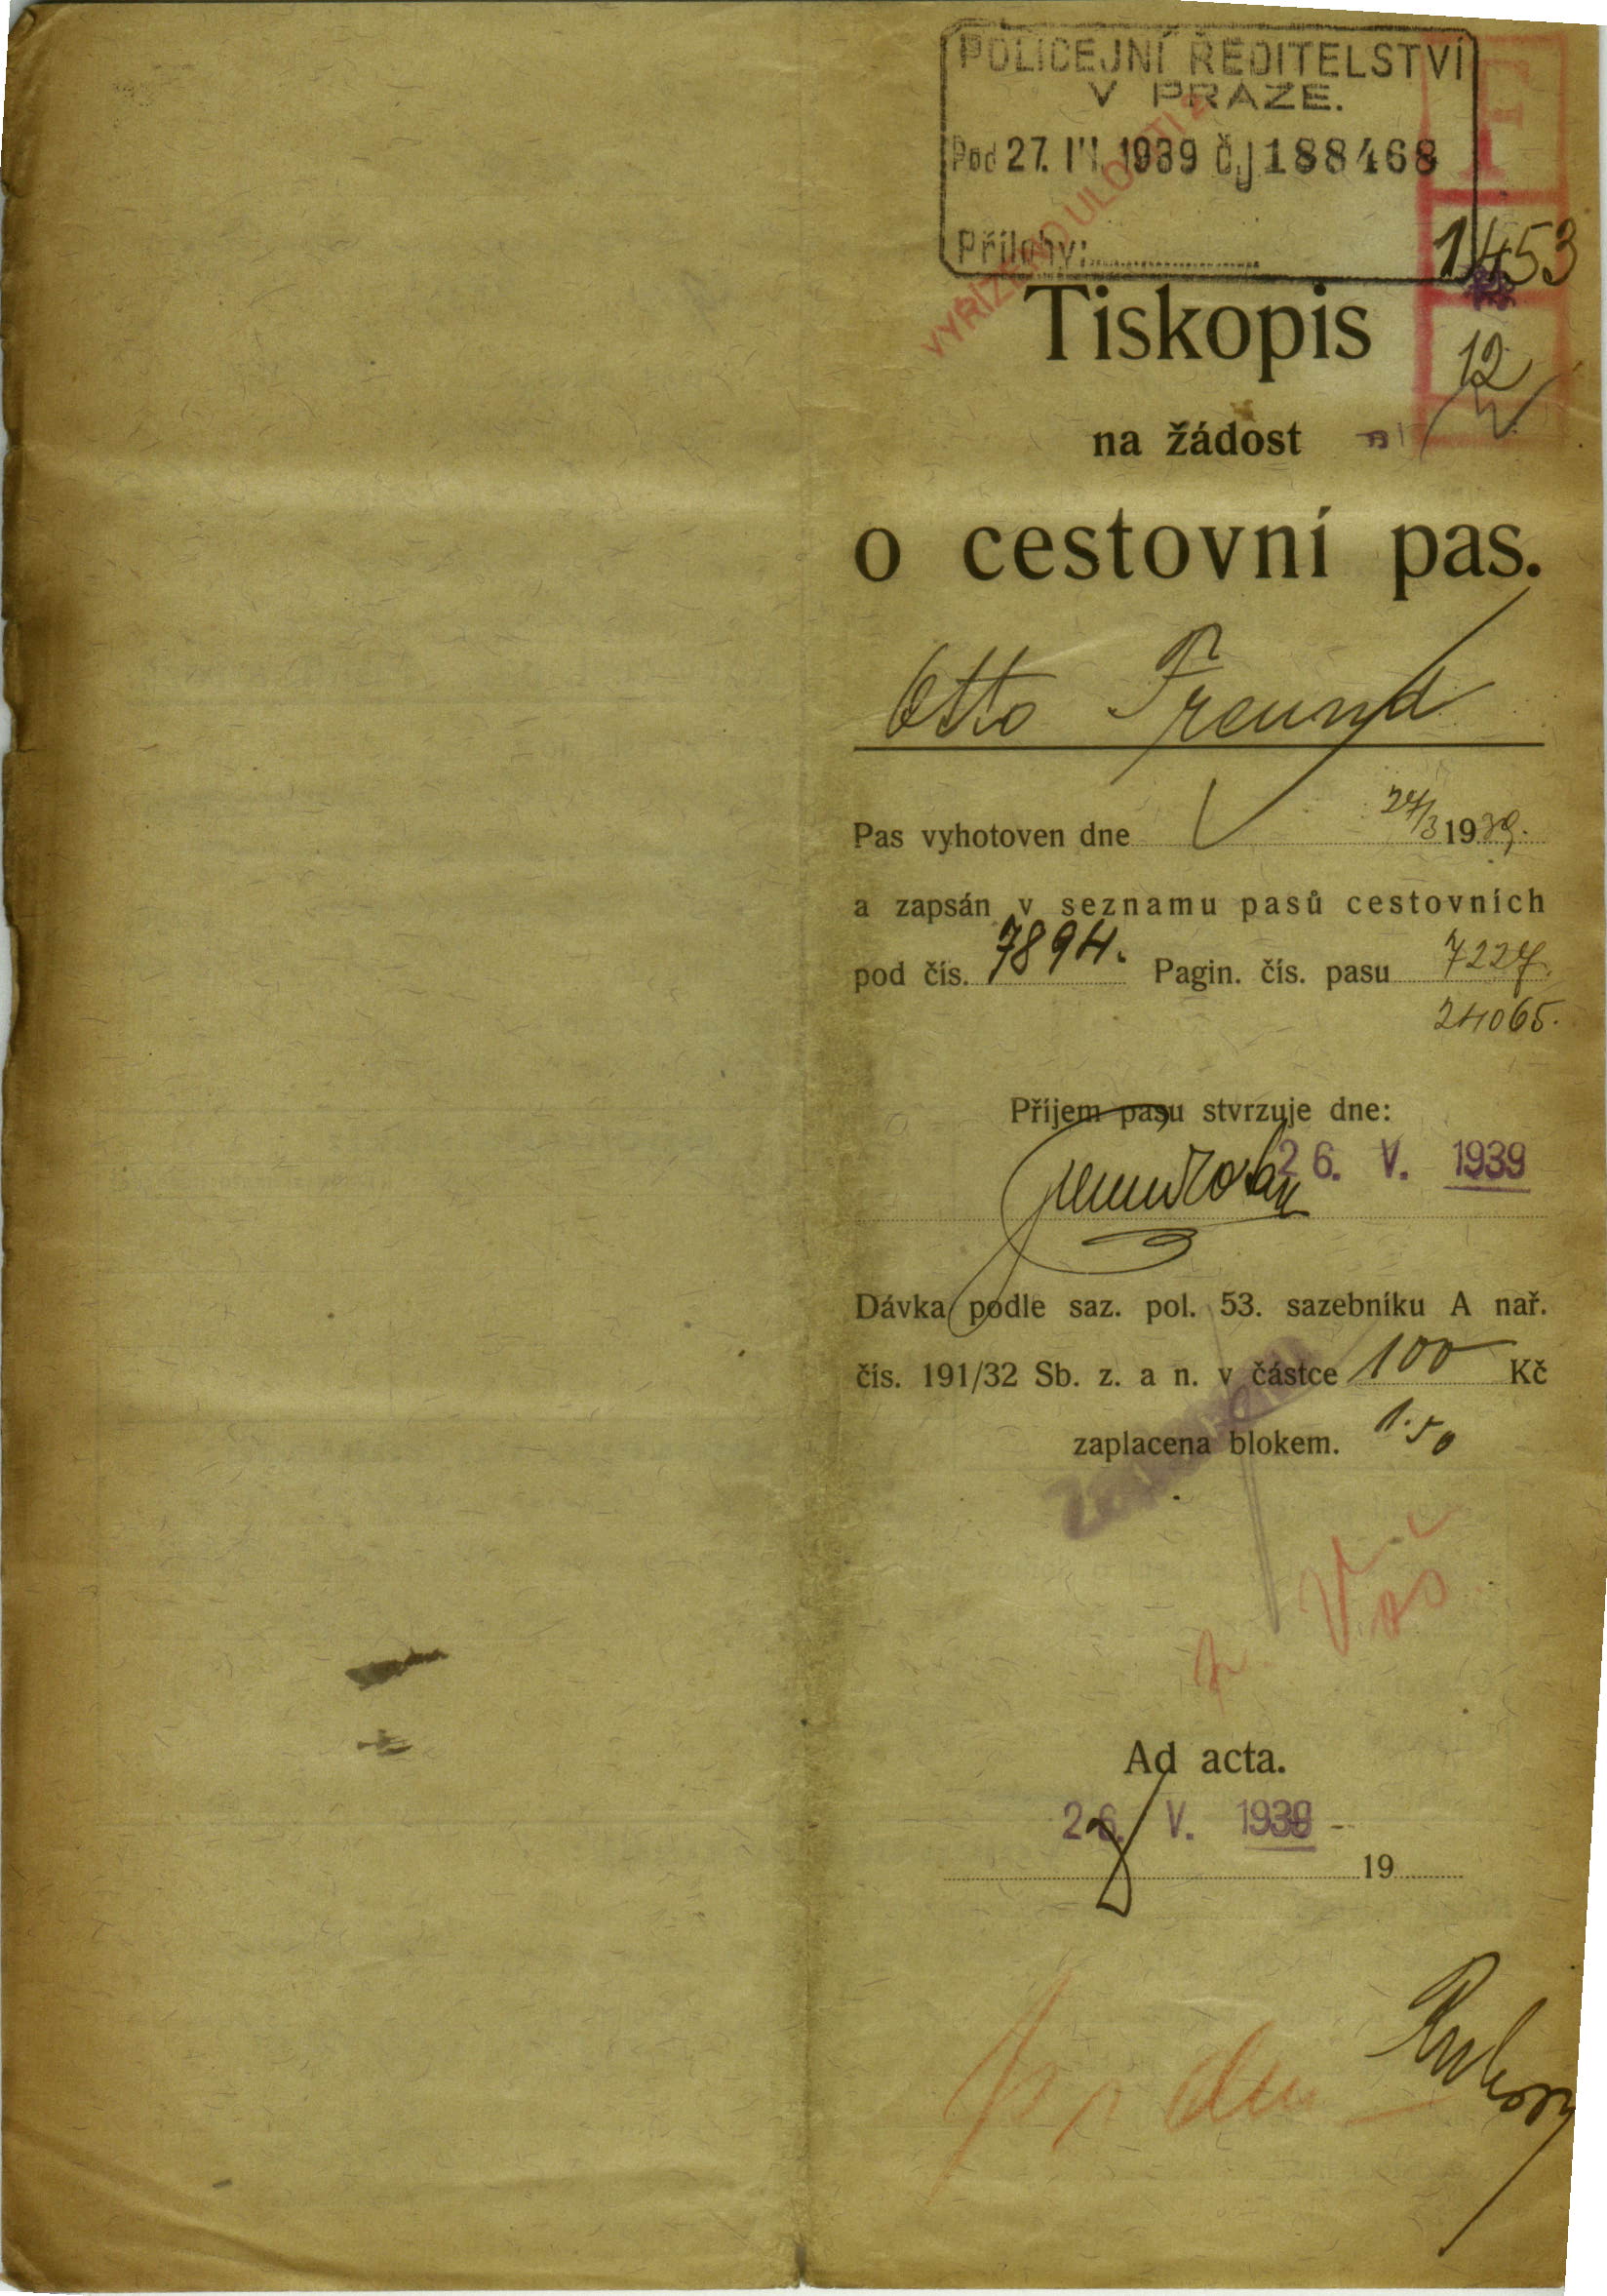 POLICEJNÍ ŘEDITELSTVÍ
V PRAZE.
Pod 27. III 1939 čj 188468
Přílohy:
F
1453
12
Tiskopis
na žádost
o cestovní pas.
Otto Freund
Pas vyhotoven dne 27/3 1939.
a zapsán v seznamu pasů cestovních
pod čís. 7894. Pagin. čís. pasu 7227.
24065.
Příjem pasu stvrzuje dne:
26. V. 1939
Dávka podle saz. pol. 53. sazebníku A nař.
čís. 191/32 Sb. z. a n. v částce 100 Kč
zaplacena blokem. 1.50
Ad acta.
26. V. 1939
19